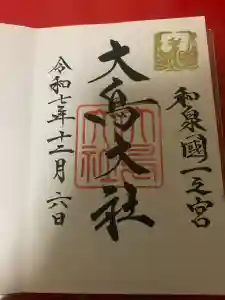 和泉國一之宮
大鳥大社
令和七年十二月六日